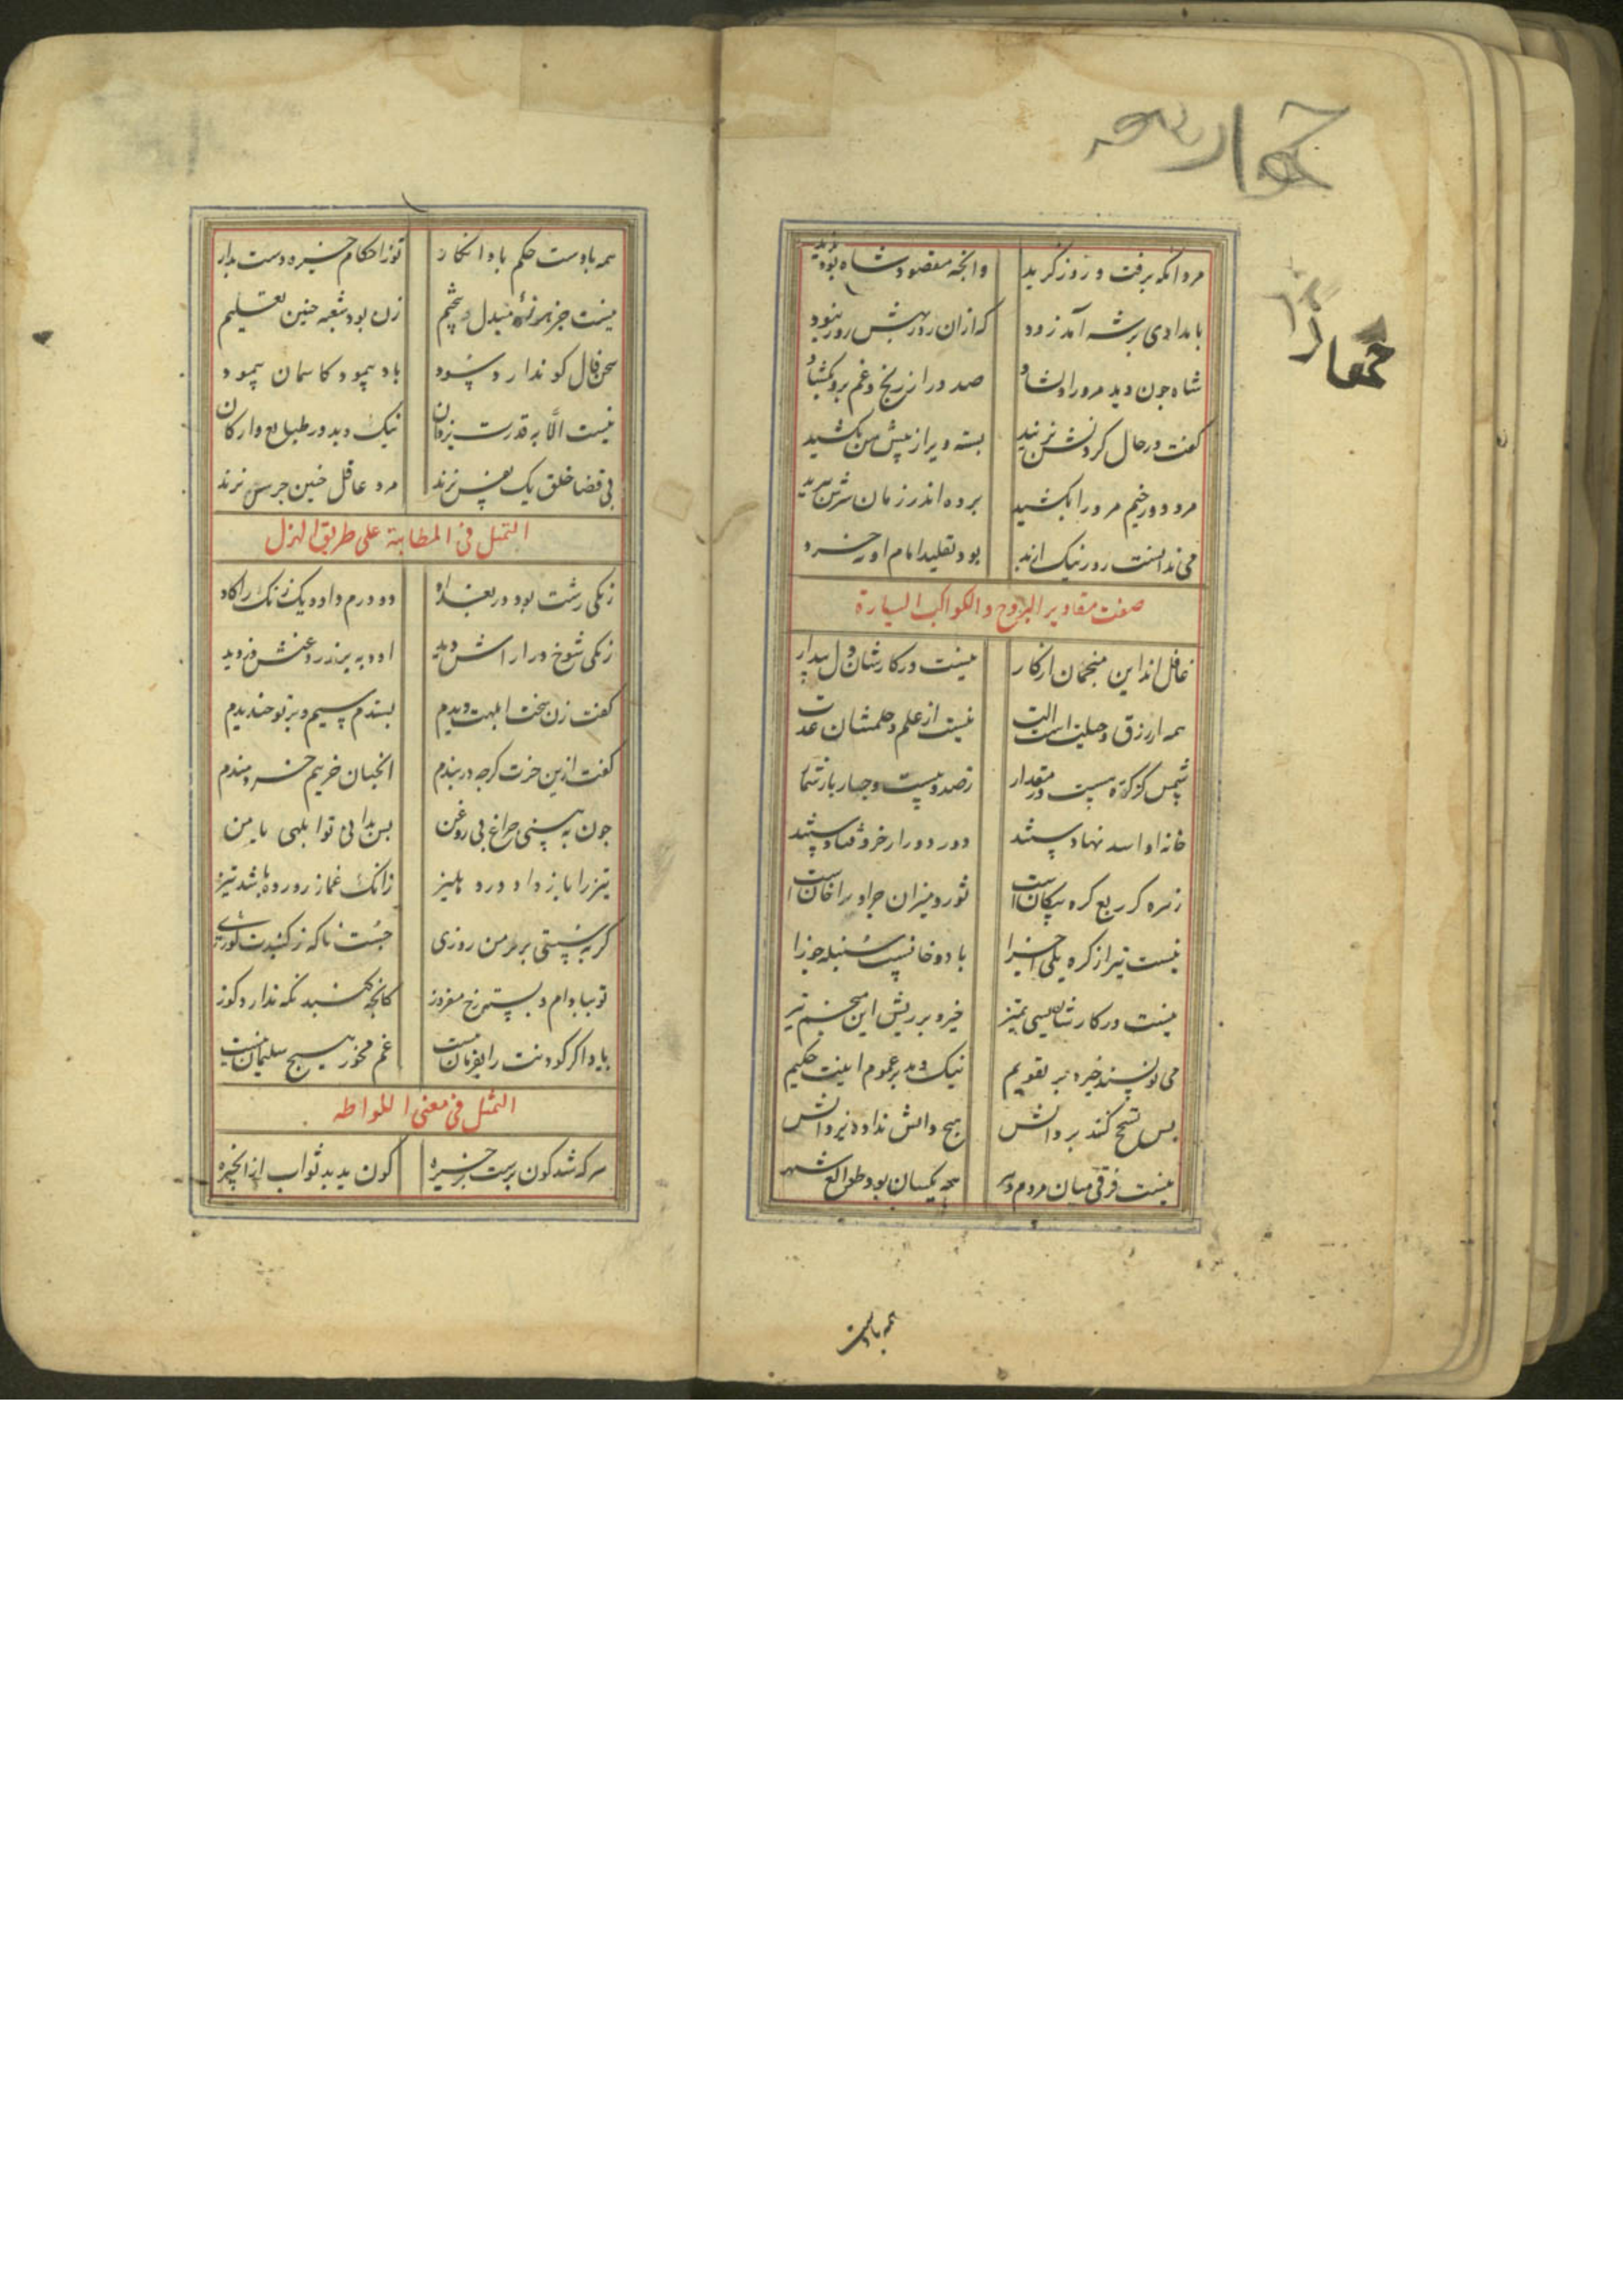 مرد آنکه برفت و روز گزید وانچه مقصود شاه بود بدید
بامدادی بر شه آمد زود که ازان روز بهش روز نبود
شاه چون دید مرورا دلشاد صد در از رنج و غم برو بکشاد
کفت در حال کردنش بزنید بسته ویرا ز پیش من بکشید
مرد دورخیم مرورا بکشید برد اندر زمان سرش ببرید
می ندانست روز نیک از بد بود تقلید امام او نه خرد
صفت مقادیر البروج والکواکب السیارة
غافل اند این منجمان از کار نیست در کارشان دل بیدار
همه از زرق و حیلت است الت نیست از علم و حلمشان عدت
شمس کز کره هست در مقدار زصد و بیست و چهار بار شمار
خانه او اسد نهادستند دور دور از خرد فتادستند
زهره کز ربع کره یکان است ثور و میزان چرا ورا خان است
نیست تیر از کره یکی اجزا با دو خانست سنبله جوزا
نیست در کارشان بسی تمیز خیره بر ریش این منجم تیز
می نویسند خیره بر تقویم نیک و بد بر عموم اینت حکیم
پس تبجح کند بر دانش هیچ دانش نداده یزدانش
نیست فرقی میان مردم دهر همه یکسان بود طوالع شهر
همه بادست
همه بادست حکم باد انکار تو ز احکام خیره دست بدار
نیست جز هرزه مندل و تنجیم زن بود شعبه چنین تعلیم
سخن فال کو ندارد سود باد پیمود کاسمان پیمود
نیست الا به قدرت یزدان نیک و بد در طبایع و ارکان
بی قضا خلق یک نفس نزند مرد عاقل چنین جرس نزند
التمثل فی المطایبة علی طریق الهزل
زنکی رشت بود در بغداد دو درم داد و یک زنک را کاد
زنکی شوخ در ارا شش دید
کفت زن سخت ابلهت دیدم بستدم سیم و بر تو خندیدم
کفت ازین حزت کرچه در بندم انچنان خر نیم خردمندم
چون نه بینی چراغ بی روغن پس بدانی تو ابلهی یا من
تیز را باز داد در دهلیز زانک غماز روده باشد تیز
جست ناکه ز کنبدت کوزی
تو بیا وام و بستم رخ مفروز کانچه کنبد نکه ندارد کوز
باد اکر کودنت را بفرمان نیست غم مخور هیچ سلیمان نیست
التمثل فی معنی اللواطه
هر که شد کون پرست بر خیره کون بدید ثواب از انجیره